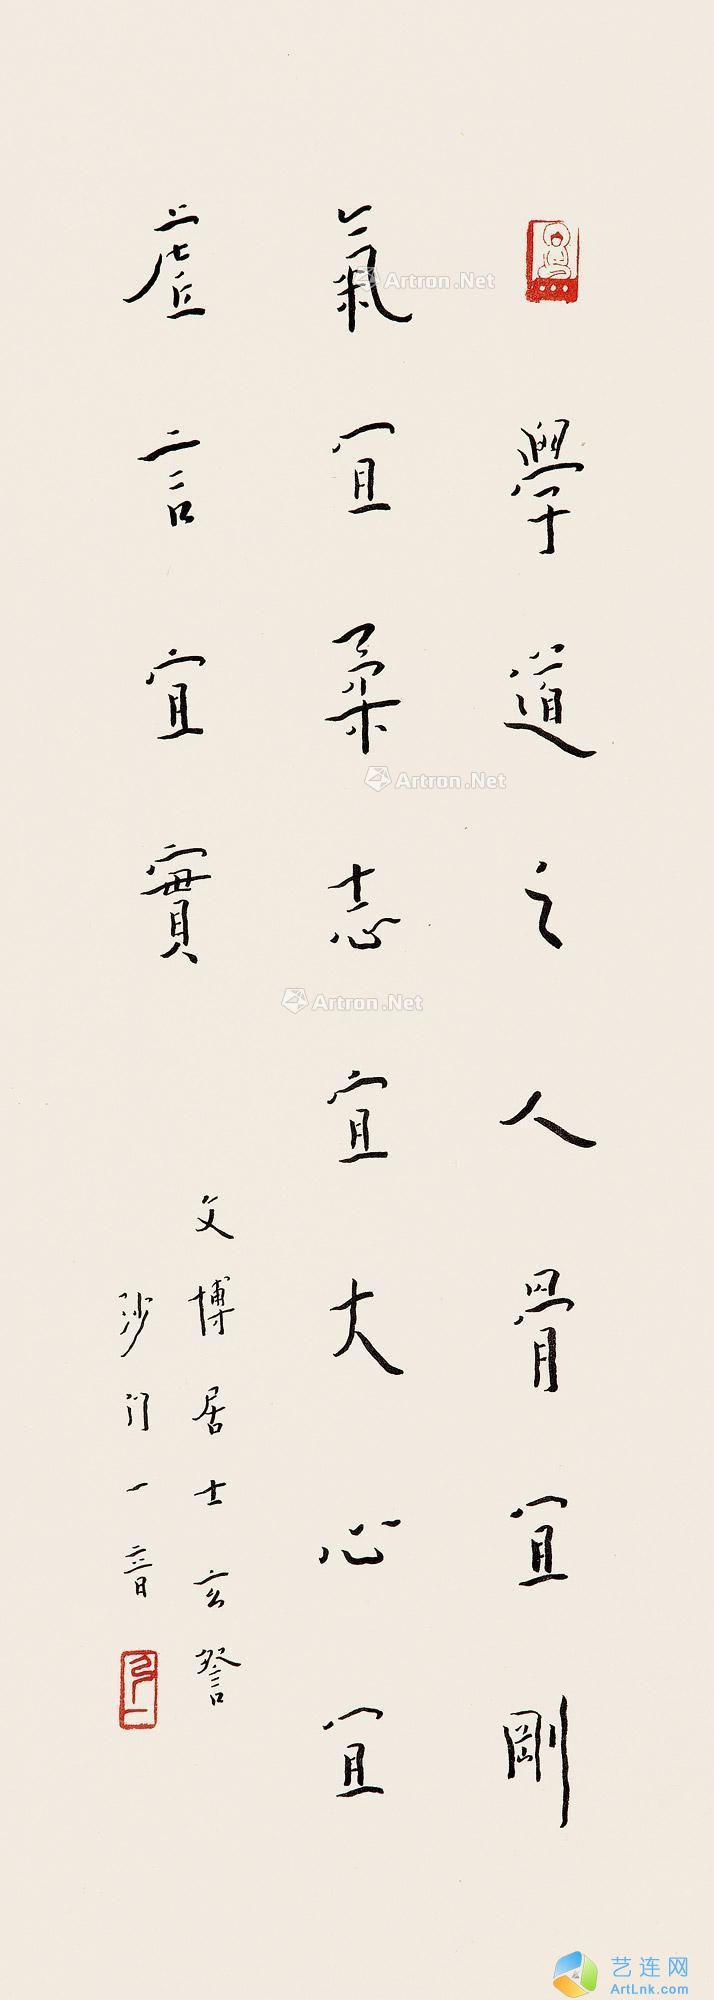 學道之人骨宜剛
氣宜柔志宜大心宜
虛言宜實
文博居士玄詧
沙門一音
Artron.Net
Artron.Net
Artron.Net
艺连网
ArtLnk.com